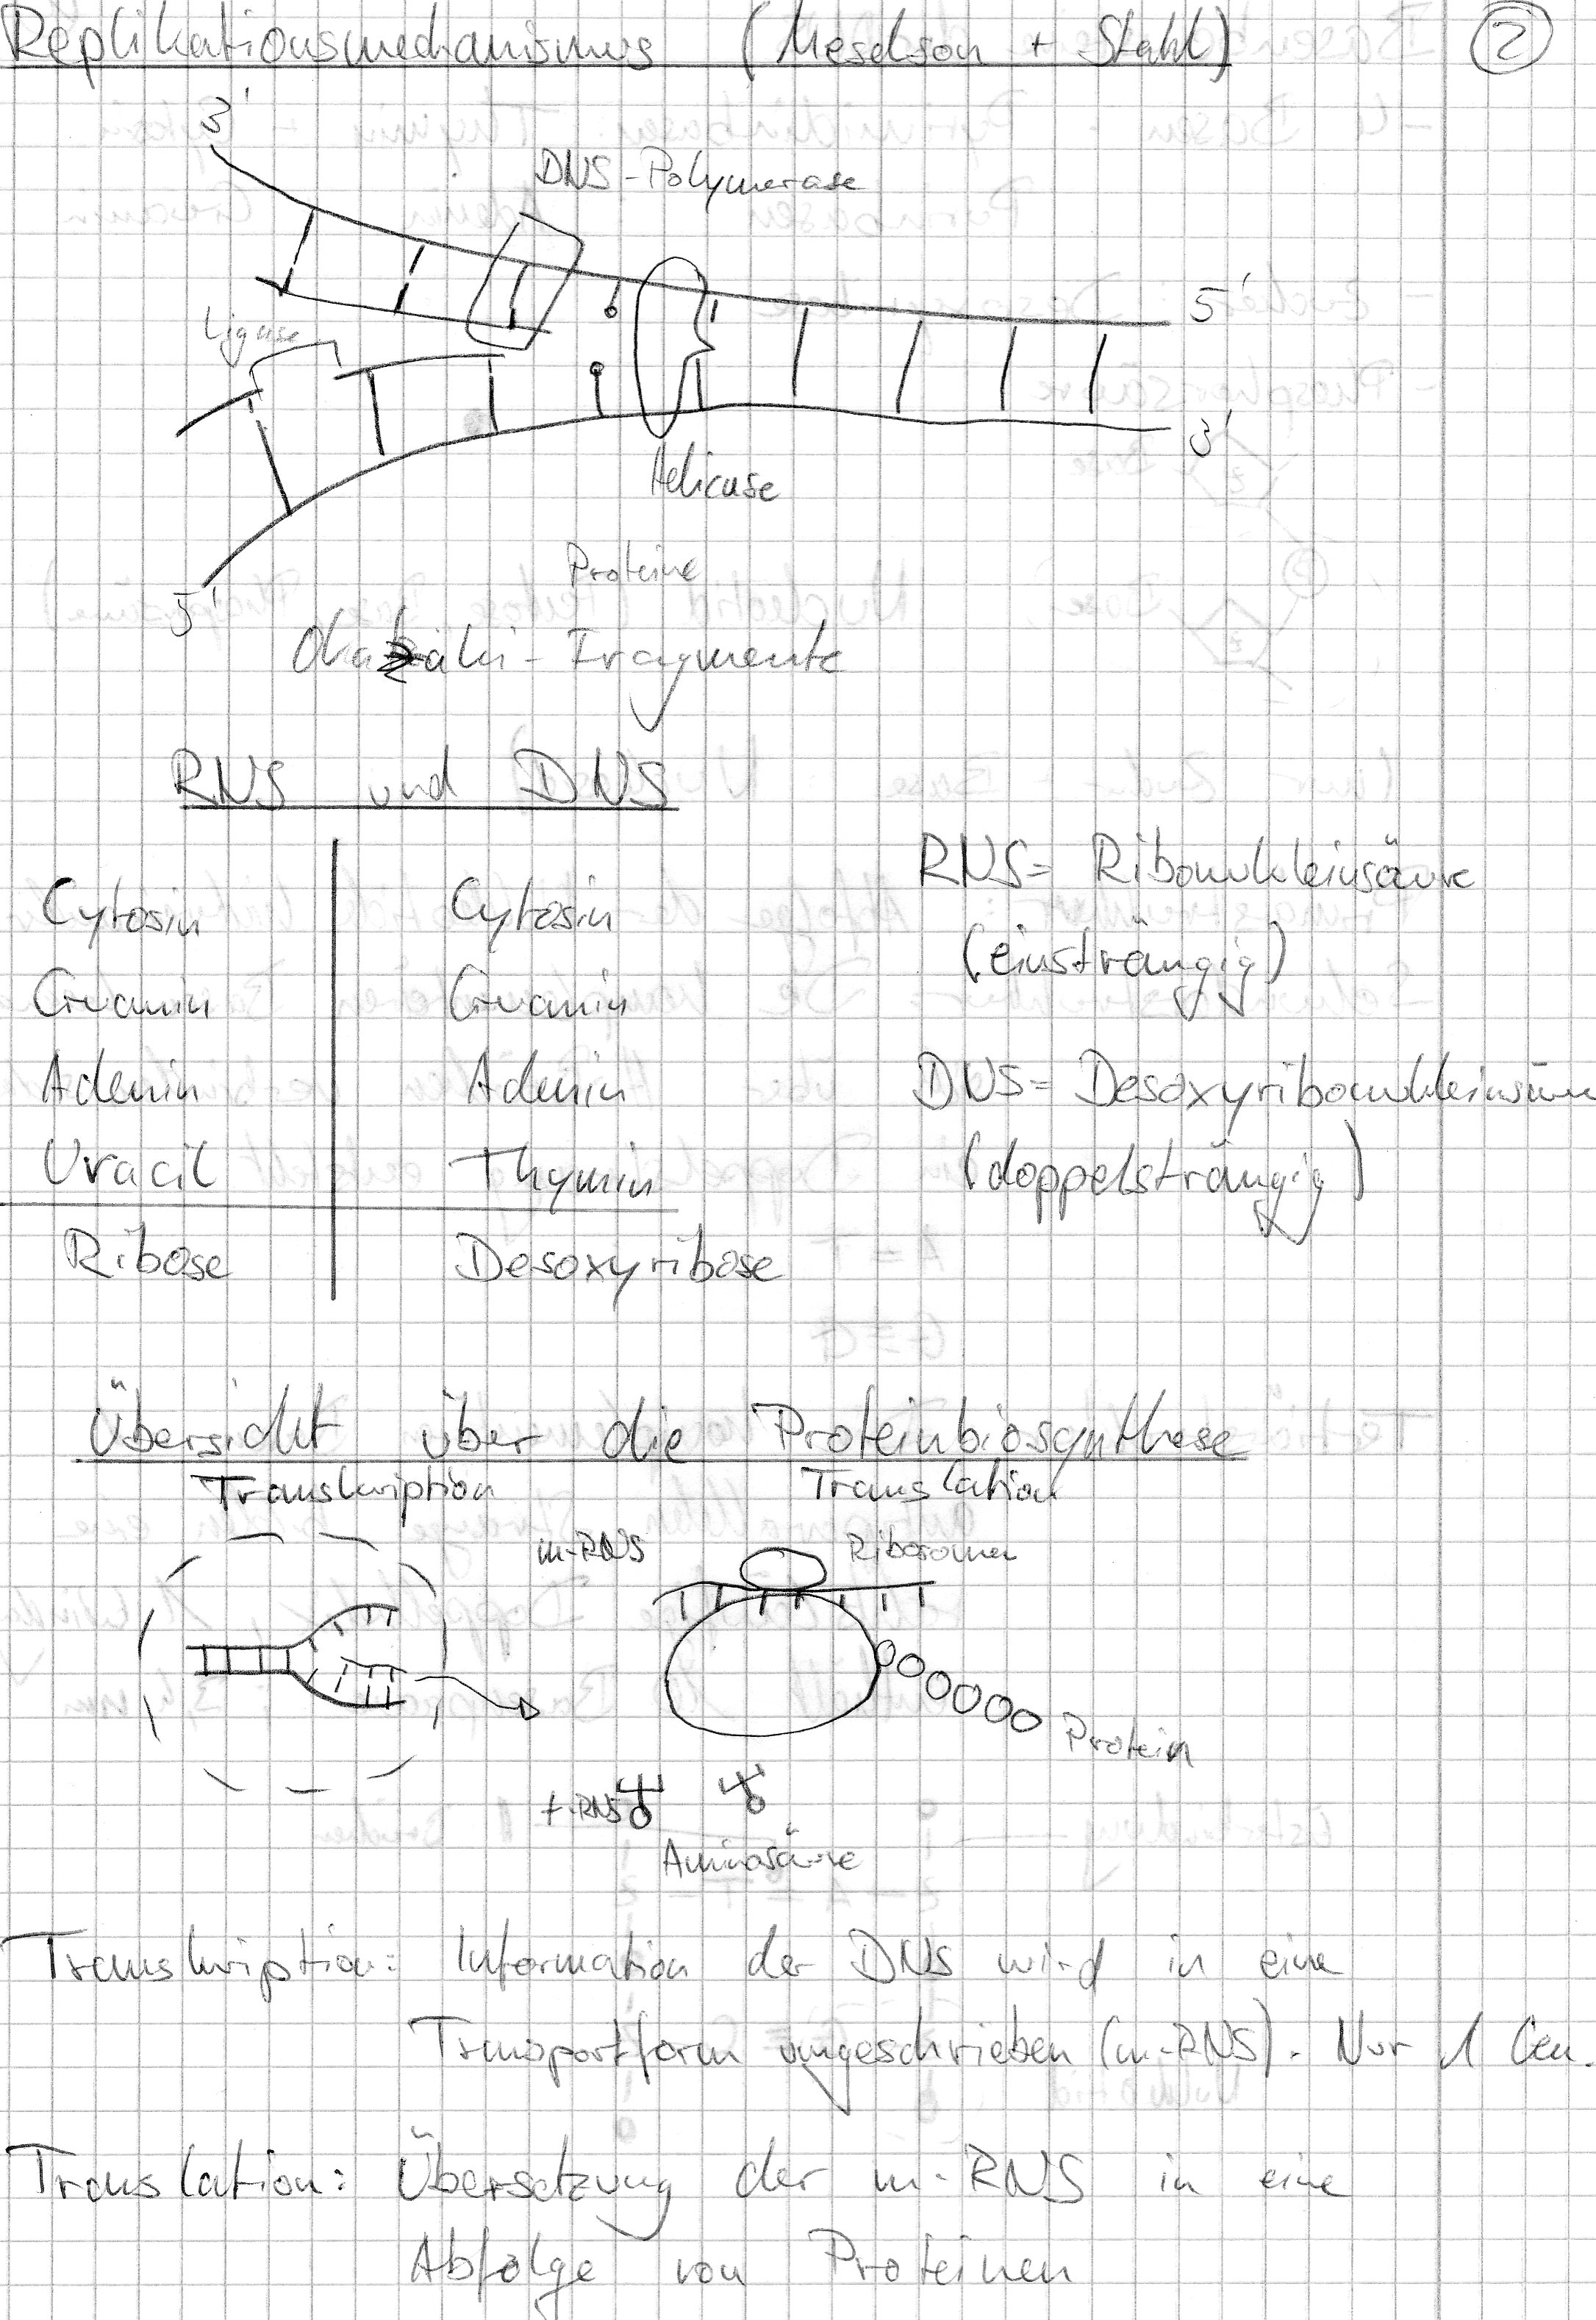 Replikationsmechanismus (Meselson + Stahl) 2
3'
DNS-Polymerase
5'
Ligase
3'
Helicase
Proteine
5'
Okazaki-Fragmente
RNS und DNS
RNS= Ribonukleinsäure
Cytosin Cytosin
(einsträngig)
Guanin Guanin
Adenin Adenin
DNS= Desoxyribonukleinsäure
Uracil Thymin
(doppelsträngig)
Ribose Desoxyribose
Übersicht über die Proteinbiosynthese
Transkription Translation
m-RNS Ribosomen
Protein
t-RNS
Aminosäure
Transkription: Information der DNS wird in eine
Transportform umgeschrieben (m-RNS). Nur 1 Gen.
Translation: Übersetzung der m-RNS in eine
Abfolge von Proteinen